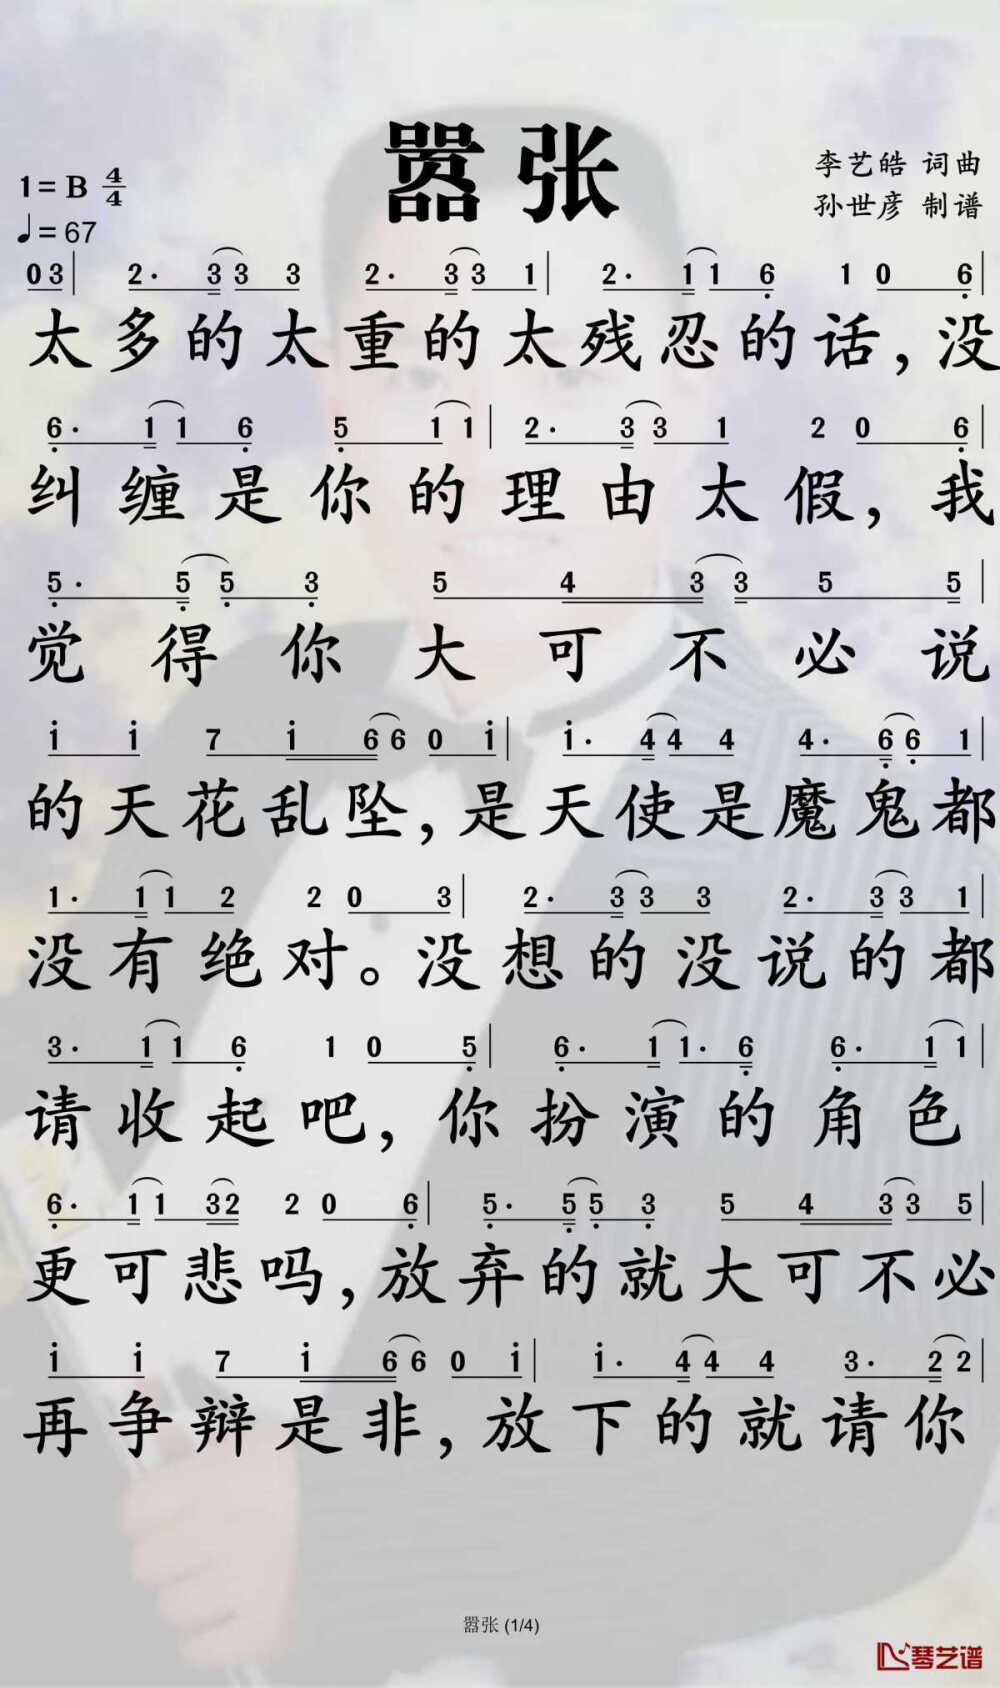 嚣张
李艺皓 词曲
孙世彦 制谱
1=B 4/4
♩=67
03| 2· 33 3 2· 33 1| 2· 11 6̣ 1 0 6̣|
太多的太重的太残忍的话,没
6̣· 11 6̣ 5̣ 11| 2· 33 1 2 0 6̣|
纠缠是你的理由太假,我
5̣· 5̣5̣ 3̣ 5 4 33 5 5|
觉得你大可不必说
i i 7 i 66 0 i| i· 44 4 4· 6̣6̣ 1|
的天花乱坠,是天使是魔鬼都
1· 11 2 2 0 3| 2· 33 3 2· 33 1|
没有绝对。没想的没说的都
3· 11 6̣ 1 0 5̣| 6̣· 11· 6̣ 6̣· 11|
请收起吧,你扮演的角色
6̣· 11 32 2 0 6̣| 5̣· 5̣5̣ 3̣ 5 4 33 5|
更可悲吗,放弃的就大可不必
i i 7 i 66 0 i| i· 44 4 3· 22|
再争辩是非,放下的就请你
嚣张 (1/4)
琴艺谱